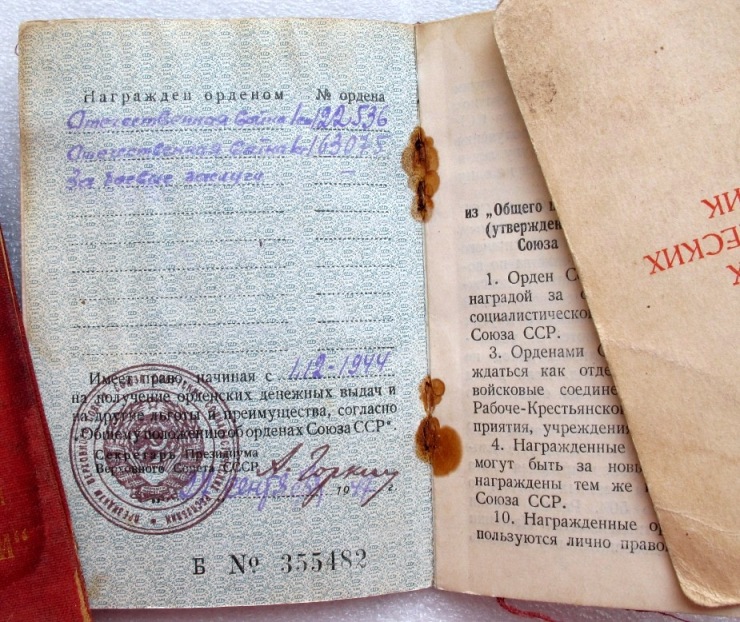 Награжден орденом № ордена
Отечественная война I ст 122536
Отечественная война 163075
За боевые заслуги —
Имеет право, начиная с 1.12-1944
на получение орденских денежных выдач и
на другие льготы и преимущества, согласно
„Общему положению об орденах Союза ССР“.
Секретарь Президиума
Верховного Совета СССР А. Горкин
19 г.
Б № 355482
из „Общего
(утвержден
Союза
1. Орден С
наградой за
социалистическо
Союза ССР.
3. Орденами С
ждаться как отде
войсковые соедине
Рабоче-Крестьянско
приятия, учреждения
4. Награжденные
могут быть за нов
награждены тем же
Союза ССР.
10. Награжденные ор
пользуются лично право
ИК
ЕСКИХ
Х